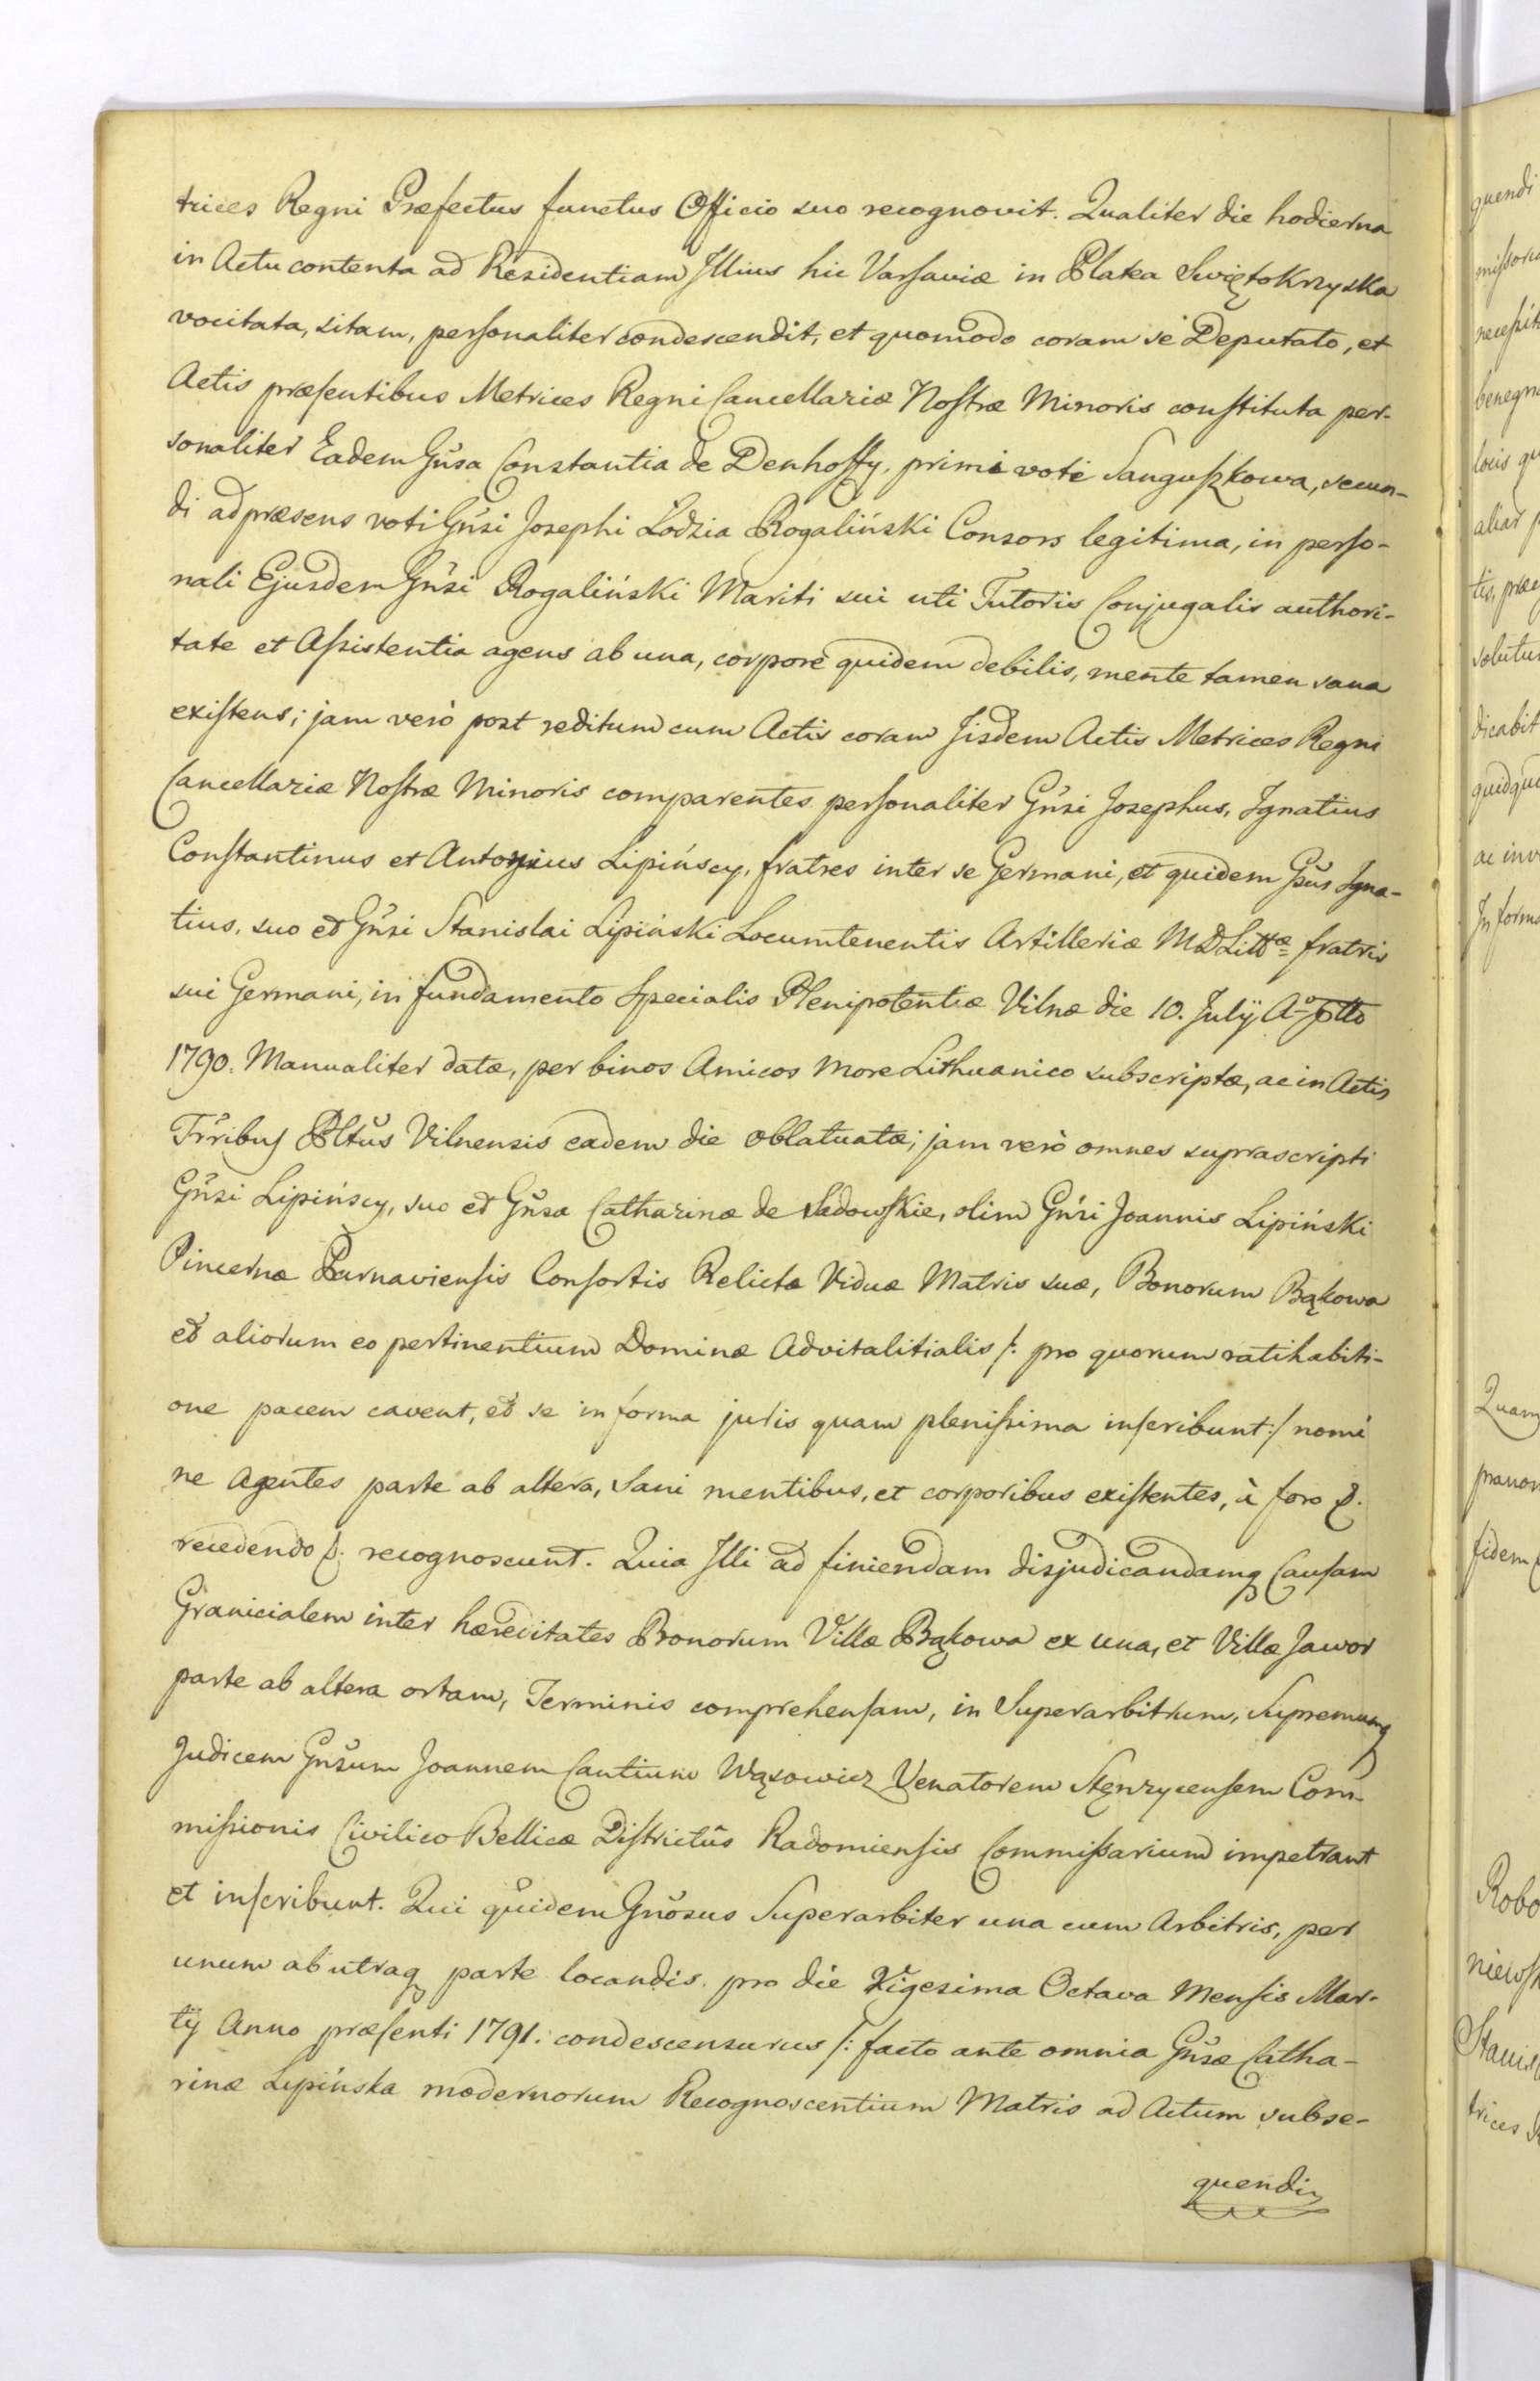 trices Regni Præfectus functus Officio suo recognovit. Qualiter die hodierna
in Actu contenta ad Residentiam Illius hic Varsaviæ in Platea Swiętokrzyska
vocitata, sitam, personaliter condescendit, et quomodo coram se Deputato, et
Actis præsentibus Metrices Regni Cancellariæ Nostræ Minoris constituta per-
sonaliter Eadem Gnsa Constantia de Denhoffy, primi voti Sanguszkowa, secun-
di ad præsens voti Gnsi Josephi Łodzia Rogaliński Consors legitima, in perso-
nali Ejusdem Gnsi Rogaliński Mariti sui uti Tutoris Conjugalis authori-
tate et Assistentia agens ab una, corpore quidem debilis, mente tamen sana
existens; jam verò post reditum cum Actis coram Iisdem Actis Metrices Regni
Cancellariæ Nostræ Minoris comparentes personaliter Gnsi Josephus, Ignatius
Constantinus et Antonius Lipińscy, fratres inter se Germani, et quidem Gsus Igna-
tius, suo et Gnsi Stanislai Lipiński Locumtenentis Artilleriæ M D Littæ fratris
sui Germani, in fundamento Specialis Plenipotentiæ Vilnæ die 10. Julÿ Ao
1790. Manualiter datæ, per binos Amicos More Lithuanico subscriptæ, ac in Actis
Trribus Pltus Vilnensis eadem die oblatuatæ; jam verò omnes suprascripti
Gnsi Lipińscy, suo et Gnsa Catharinæ de Sadowskie, olim Gnsi Joannis Lipiński
Pincernæ Parnaviensis Consortis Relictæ Viduæ Matris suæ, Bonorum Bąkowa
et aliorum eo pertinentium Dominæ Advitalitialis /: pro quorum ratihabiti-
one pacem cavent, et se in forma juris quam plenissima inscribunt :/ nomi
ne Agentes parte ab altera, Sani mentibus, et corporibus existentes, à foro &.
recedendo &. recognoscunt. Quia Illi ad finiendam disjudicandamq Causam
Granicialem inter hæreditates Bonorum Villæ Bąkowa ex una, et Villæ Jawor
parte ab altera ortam, Terminis comprehensam, in Superarbitrum, Supremumq
Judicem Gnsum Joannem Cantium Wąsowicz Venatorem Stęnzycensem Com-
missionis Civilico Bellicæ Districtûs Radomiensis Commissarium impetrant
et inscribunt. Qui quidem Gnosus Superarbiter una cum Arbitris, per
unum ab utraq parte locandis, pro die Vigesima Octava Mensis Mar-
tÿ Anno præsenti 1791. condescensurus /: facto ante omnia Gnsæ Catha-
rinæ Lipińska modernorum Recognoscentium Matris ad Actum subse-
quendi
quendi
locis
Quam
fidem
trices